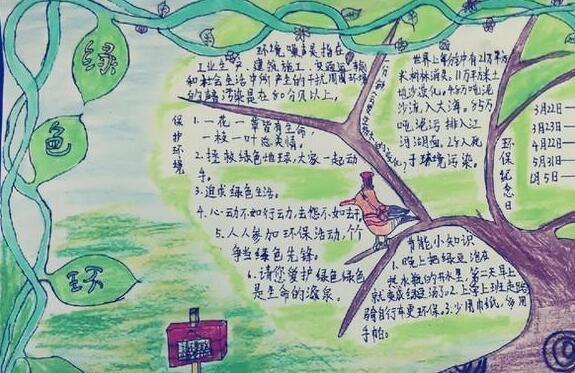 绿
色
环
环境噪声是指在
工业生产、建筑施工、交通运输
和社会生活中所产生的干扰周围环境
的
污染是在80分贝以上,
保护环境
1.一花一草皆有生命,
一枝一叶总关情。
2.拯救绿色地球,大家一起动
手。
3.追求绿色生活。
4.心动不如行动,去想不如去干
5.人人参加环保活动,个个
争当绿色先锋。
6.请您爱护绿色绿色
是生命的源泉。
世界上每分钟有
米树林消灭,11万平方米土
地沙漠化,4.8万吨泥
沙流入大海。85万
吨
污
排入江
河湖面。28人死
于环境污染。
环保纪念日
3月22日—
3月23日—
4月22日—
5月31日—
6月5日—
节能小知识
1.晚上把绿豆泡在
热水瓶的开水里,第二天早上
就变成绿豆汤了。2.上学上班走路
骑自行车更环保。3.少用巾纸,多用
手帕。